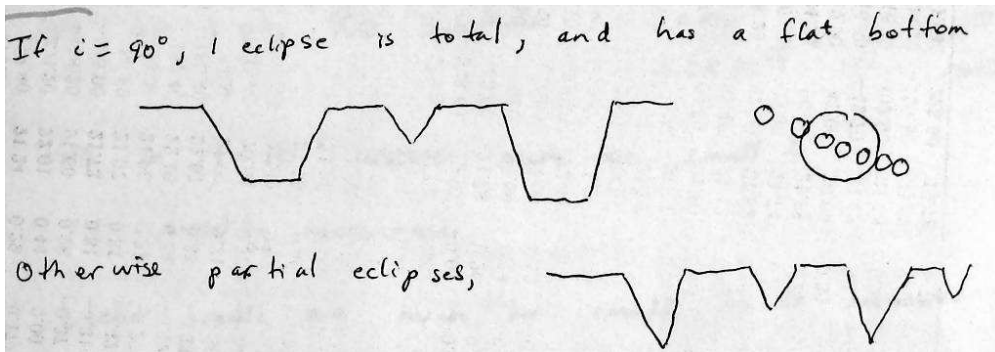 If i = 90°, 1 eclipse is total, and has a flat bottom
Otherwise partial eclipses,